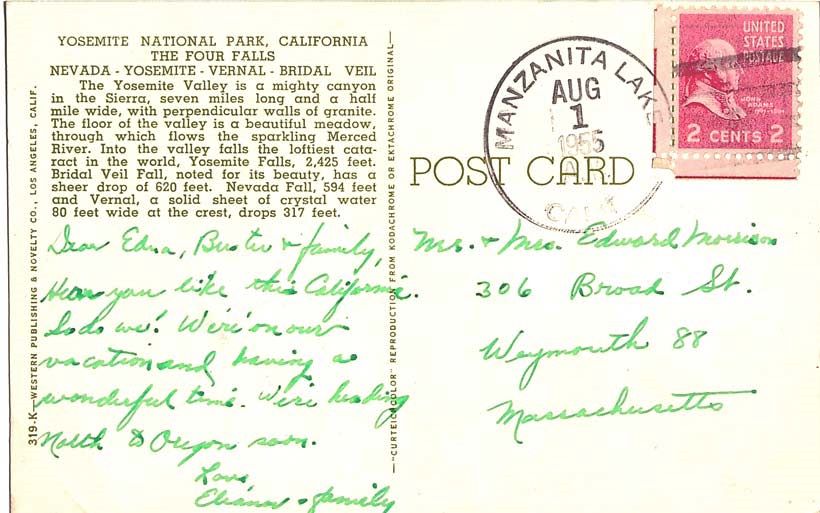 YOSEMITE NATIONAL PARK, CALIFORNIA
THE FOUR FALLS
NEVADA - YOSEMITE - VERNAL - BRIDAL VEIL
The Yosemite Valley is a mighty canyon
in the Sierra, seven miles long and a half
mile wide, with perpendicular walls of granite.
The floor of the valley is a beautiful meadow,
through which flows the sparkling Merced
River. Into the valley falls the loftiest cata-
ract in the world, Yosemite Falls, 2,425 feet.
Bridal Veil Fall, noted for its beauty, has a
sheer drop of 620 feet. Nevada Fall, 594 feet
and Vernal, a solid sheet of crystal water
80 feet wide at the crest, drops 317 feet.
Dear Edna, Buster & family,
Hear you like this California.
So do we! We're on our
vacation and having a
wonderful time. We're heading
North to Oregon soon.
Love,
Eleanor & family
319-K—WESTERN PUBLISHING & NOVELTY CO., LOS ANGELES, CALIF.
—"CURTEICHCOLOR" REPRODUCTION FROM KODACHROME OR EKTACHROME ORIGINAL—
POST CARD
MANZANITA LAKE
AUG
1
1955
CALIF
UNITED
STATES
POSTAGE
JOHN
ADAMS
2 CENTS 2
Mr. & Mrs. Edward Morrison
306 Broad St.
Weymouth 88
Massachusetts